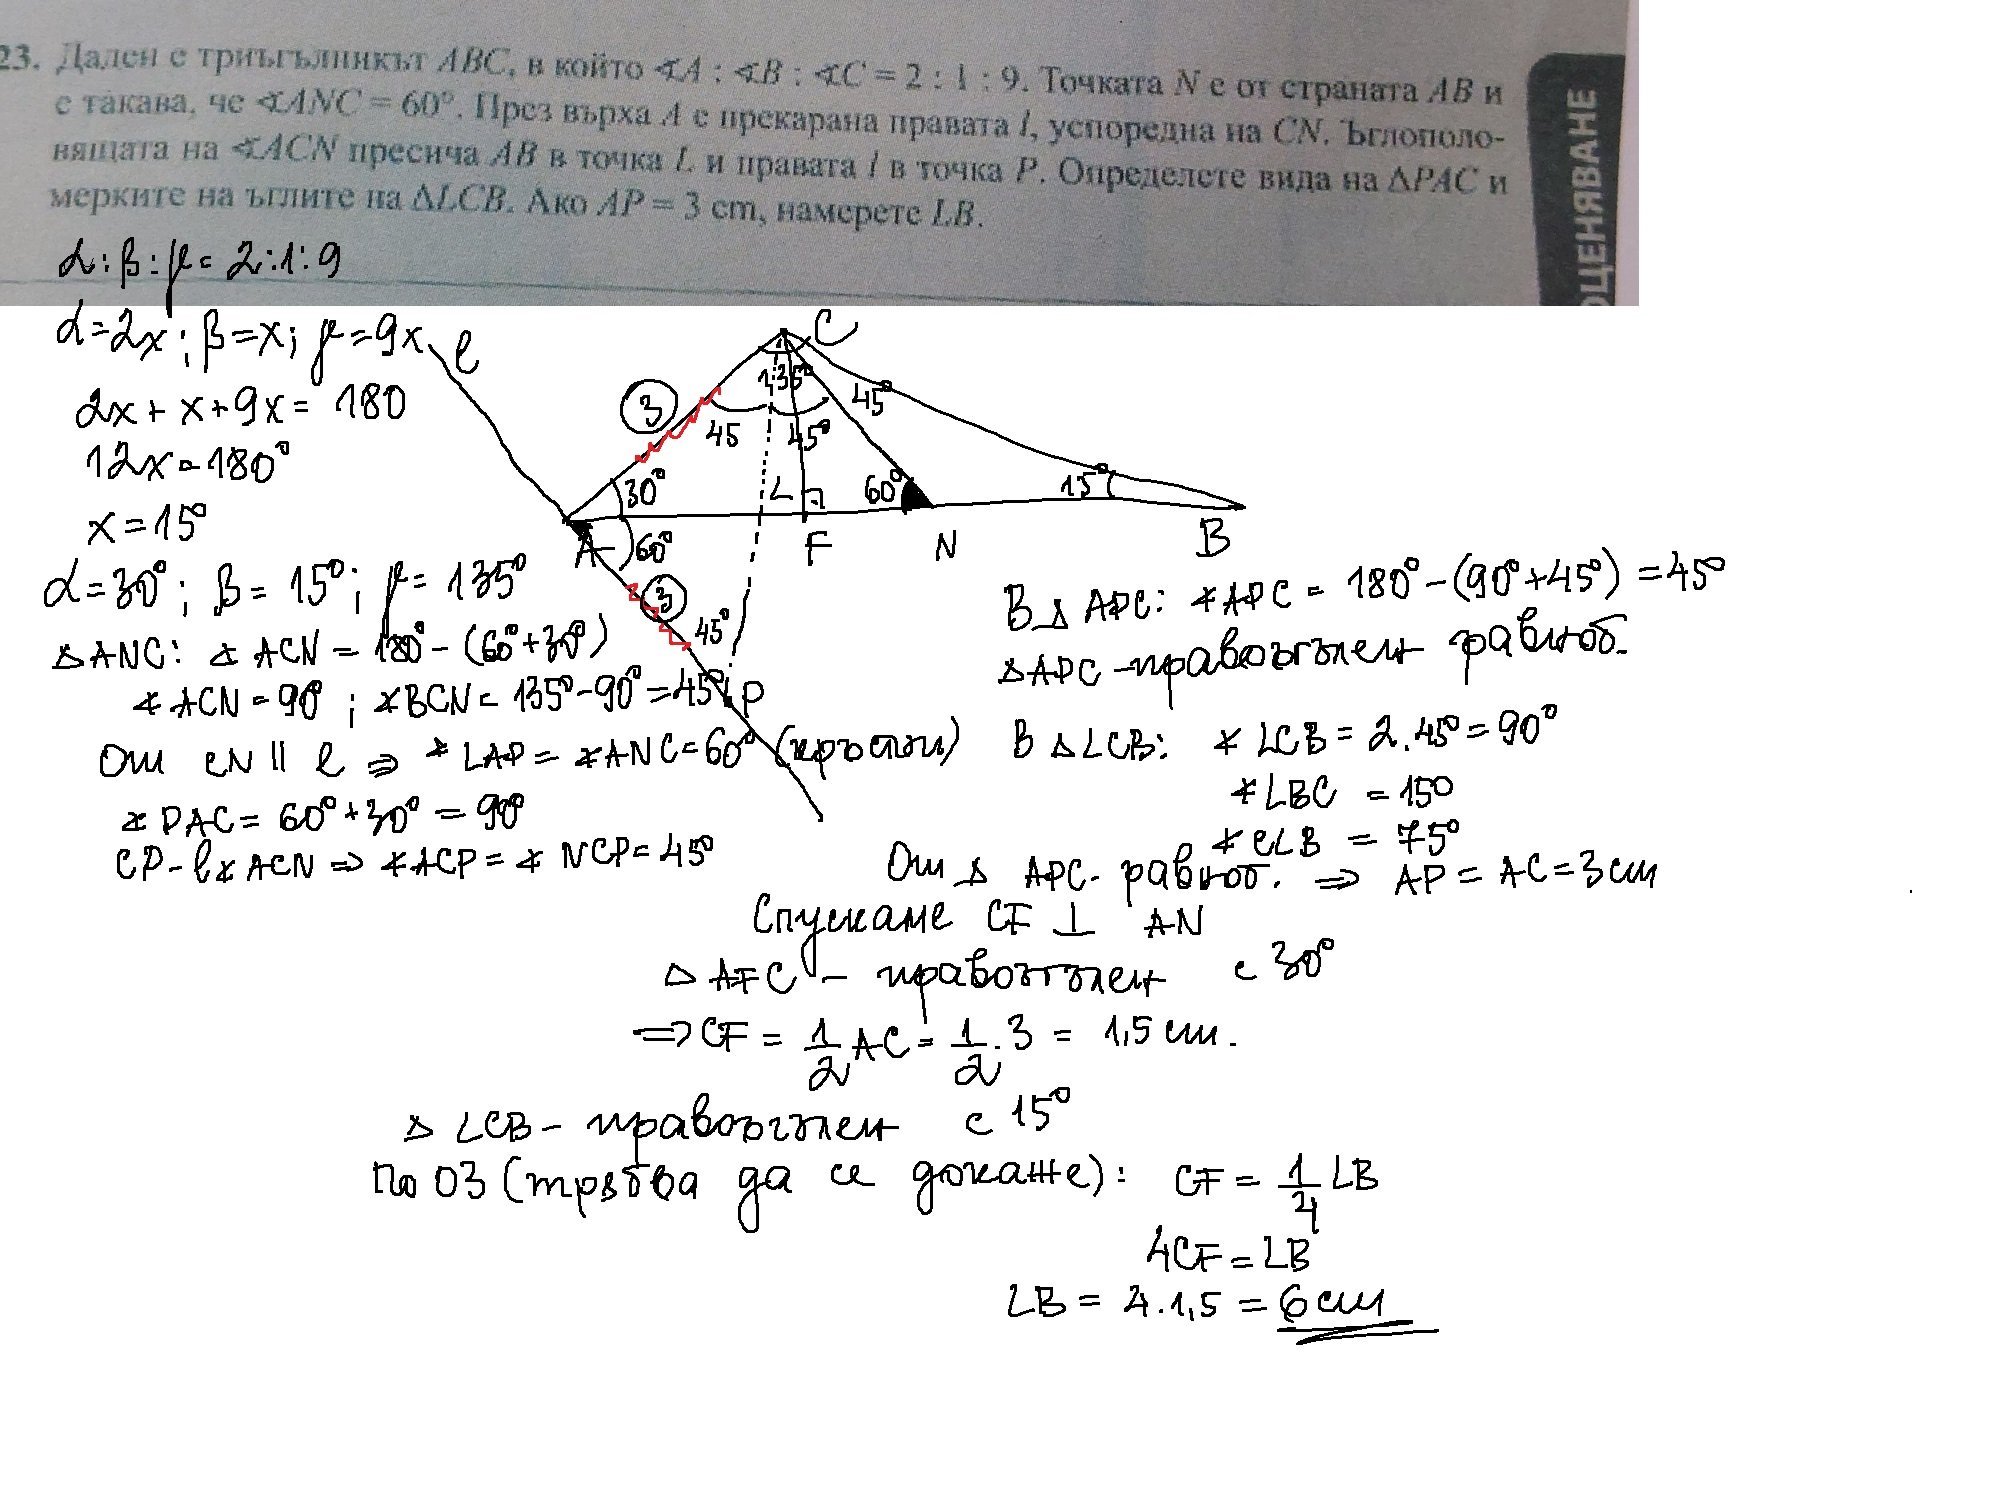 23. Даден е триъгълникът ABC, в който ∢A : ∢B : ∢C = 2 : 1 : 9. Точката N е от страната AB и
е такава, че ∢ANC = 60°. През върха A е прекарана правата l, успоредна на CN. Ъглополо-
вящата на ∢ACN пресича AB в точка L и правата l в точка P. Определете вида на ΔPAC и
мерките на ъглите на ΔLCB. Ако AP = 3 cm, намерете LB.
ОЦЕНЯВАНЕ
α:β:γ= 2:1:9
α=2x; β=x; γ=9x
2x+x+9x= 180
12x=180°
x=15°
α=30°; β= 15°; γ= 135°
ΔANC: ∢ ACN = 180°-(60°+30°)
∢ ACN = 90° ; ∢BCN= 135°-90°=45°
От CN || l ⇒ ∢LAP= ∢ANC=60° (кръстни)
∢ PAC= 60°+30° = 90°
CP-l∢ACN ⇒ ∢ACP=∢ NCP=45°
l
C
3
135°
45
45°
45°
30°
L
60°
15°
A
60°
F
N
B
3
45°
P
В Δ APC: ∢APC = 180°-(90°+45°) =45°
Δ APC -правоъгълен равноб.
В ΔLCB: ∢ LCB = 2.45°=90°
∢LBC = 15°
∢ CLB = 75°
От Δ APC- равноб. ⇒ AP = AC=3cm
Спускаме CF ⊥ AN
Δ AFC - правоъгълен с 30°
⇒ CF = 1/2 AC = 1/2 . 3 = 1,5 cm.
Δ LCB - правоъгълен с 15°
По ОЗ (трябва да се докаже): CF = 1/4 LB
4CF = LB
LB = 4.1,5 = 6cm